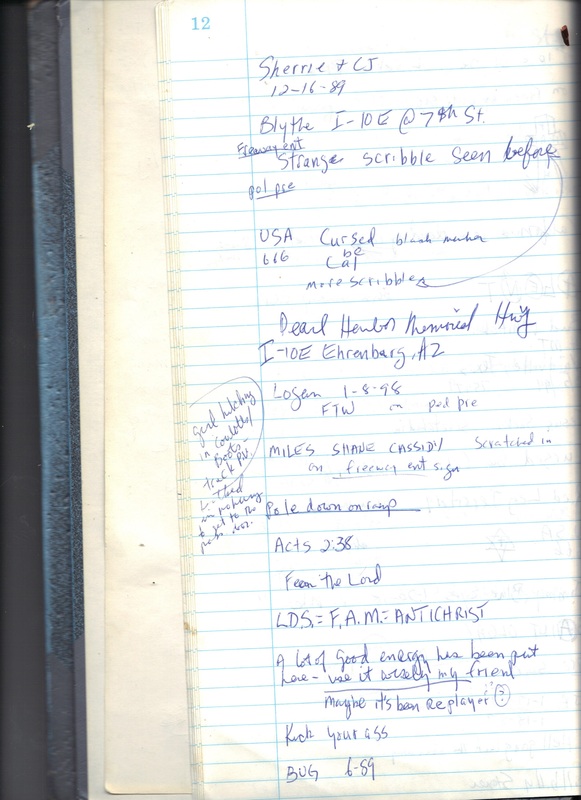 12
Sherrie + CJ
12-16-89
Blythe I-10E @ 7th St.
Freeway ent
Strange scribble seen before
pol pre
USA Cursed black marker
666 be
Cal
more scribble
Pearl Memorial Hwy
I-10E Ehrenburg, AZ
Logan 1-8-98
FTW in pod pre
girl hitching
in
Boots -
track
in
to get to the
MILES SHANE CASSIDY Scratched in
on freeway ent sign
Pole down onramp
Acts 2:38
Fear the Lord
L.D.S. = F.A.M. = ANTICHRIST
A lot of Good energy has been put
here - use it wisely my friend
Maybe it's been replayer ?
Kick your ass
BUG 6-89